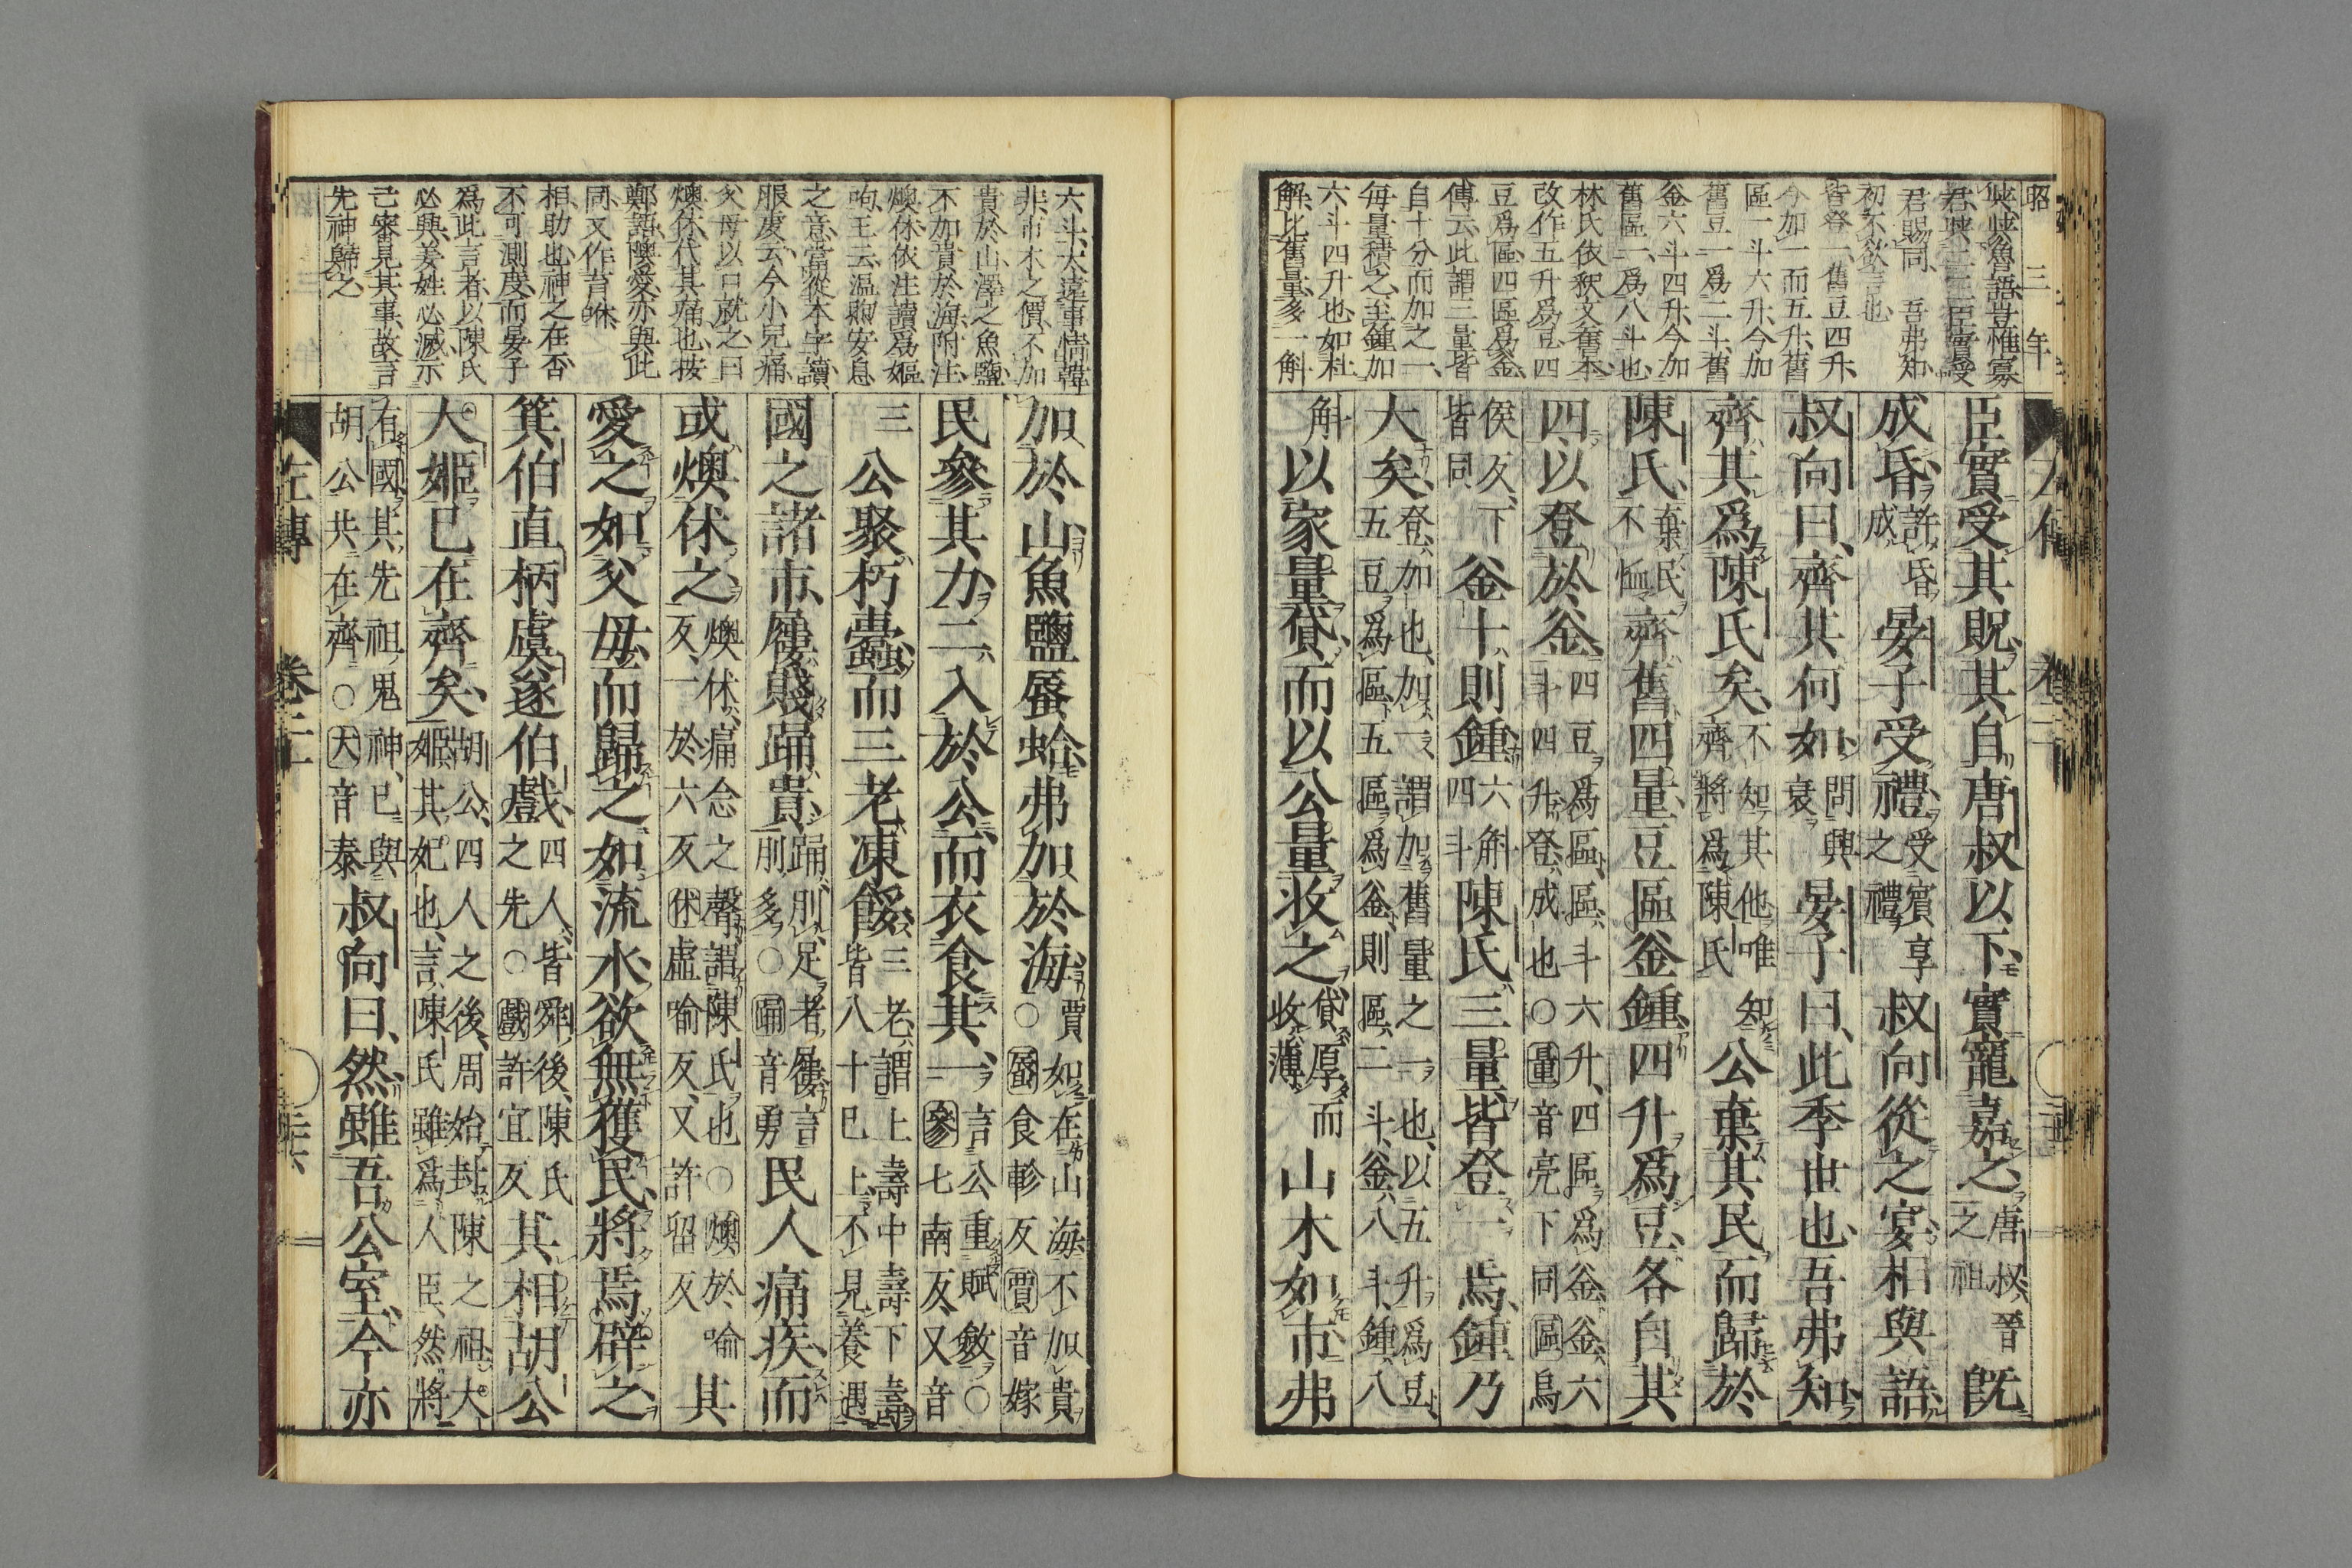 昭三年
貺貺魯語豈惟寡
君貺同
君賜同吾弗知
初不飲言也
皆登一舊豆四升
今加一而五升舊
區一斗六升今加
舊豆一爲二斗舊
釜六斗四升今加
舊區一爲八斗也
林氏依釈文舊本
改作五升爲豆四
豆爲區四區爲釜
傳云此謂三量皆
自十分而加之一
毎量積之至鍾加
六斗四升也如杜
解比舊量多一斛
臣實受其貺其自唐叔以下實寵嘉之唐叔晉之祖既
成昏許昏成晏子受禮受賓享之禮叔向從之宴相與語
叔向曰齊其何如問興衰晏子曰此季世也吾弗知
齊其爲陳氏矣不知其他唯知齊將爲陳氏公棄其民而歸於
陳氏棄民不恤齊舊四量豆區釜鍾四升爲豆各自其
四以登於釜四豆爲區區斗六升四區爲釜釜六斗四升登成也○量音亮下同區烏
侯反下皆同釜十則鍾六斛四斗陳氏三量皆登一焉鍾乃
大矣登加也加一謂加舊量之一也以五升爲豆五豆爲區五區爲釜則區二斗釜八斗鍾八
斛以家量貸而以公量收之貸厚而收薄山木如市弗
六斗大違事情韓
非市木之價不加
貴於山澤之魚鹽
不加貴於海附注
燠休依注讀爲嫗
呴王云温煦安息
之意當從本字讀
服虔云今小兒痛
父母以口就之曰
燠休代其痛也按
鄭語隩愛亦與此
同又作育烋
相助也神之在否
不可測度而晏子
爲此言者以陳氏
必興姜姓必滅示
己審見其事故言
先神歸之
加於山魚鹽蜃蛤弗加於海賈如在山海不加貴○蜃食軫反賈音嫁
民參其力二入於公而衣食其一言公重賦斂○參七南反又音
三公聚朽蠹而三老凍餒三老謂上壽中壽下壽皆八十已上不見養遇
國之諸市屨賤踊貴踊刖足者屨言刖多○踊音勇民人痛疾而
或燠休之燠休痛念之聲謂陳氏也○燠於喻反一於六反休虛喻反又許留反其
愛之如父母而歸之如流水欲無獲民將焉辟之
箕伯直柄虞遂伯戲四人皆舜後陳氏之先○戲許宜反其相胡公
大姬已在齊矣胡公四人之後周始封陳之祖大姬其妃也言陳氏雖爲人臣然將
有國其先祖鬼神已與胡公共在齊○大音泰叔向曰然雖吾公室今亦
左傳 卷二十